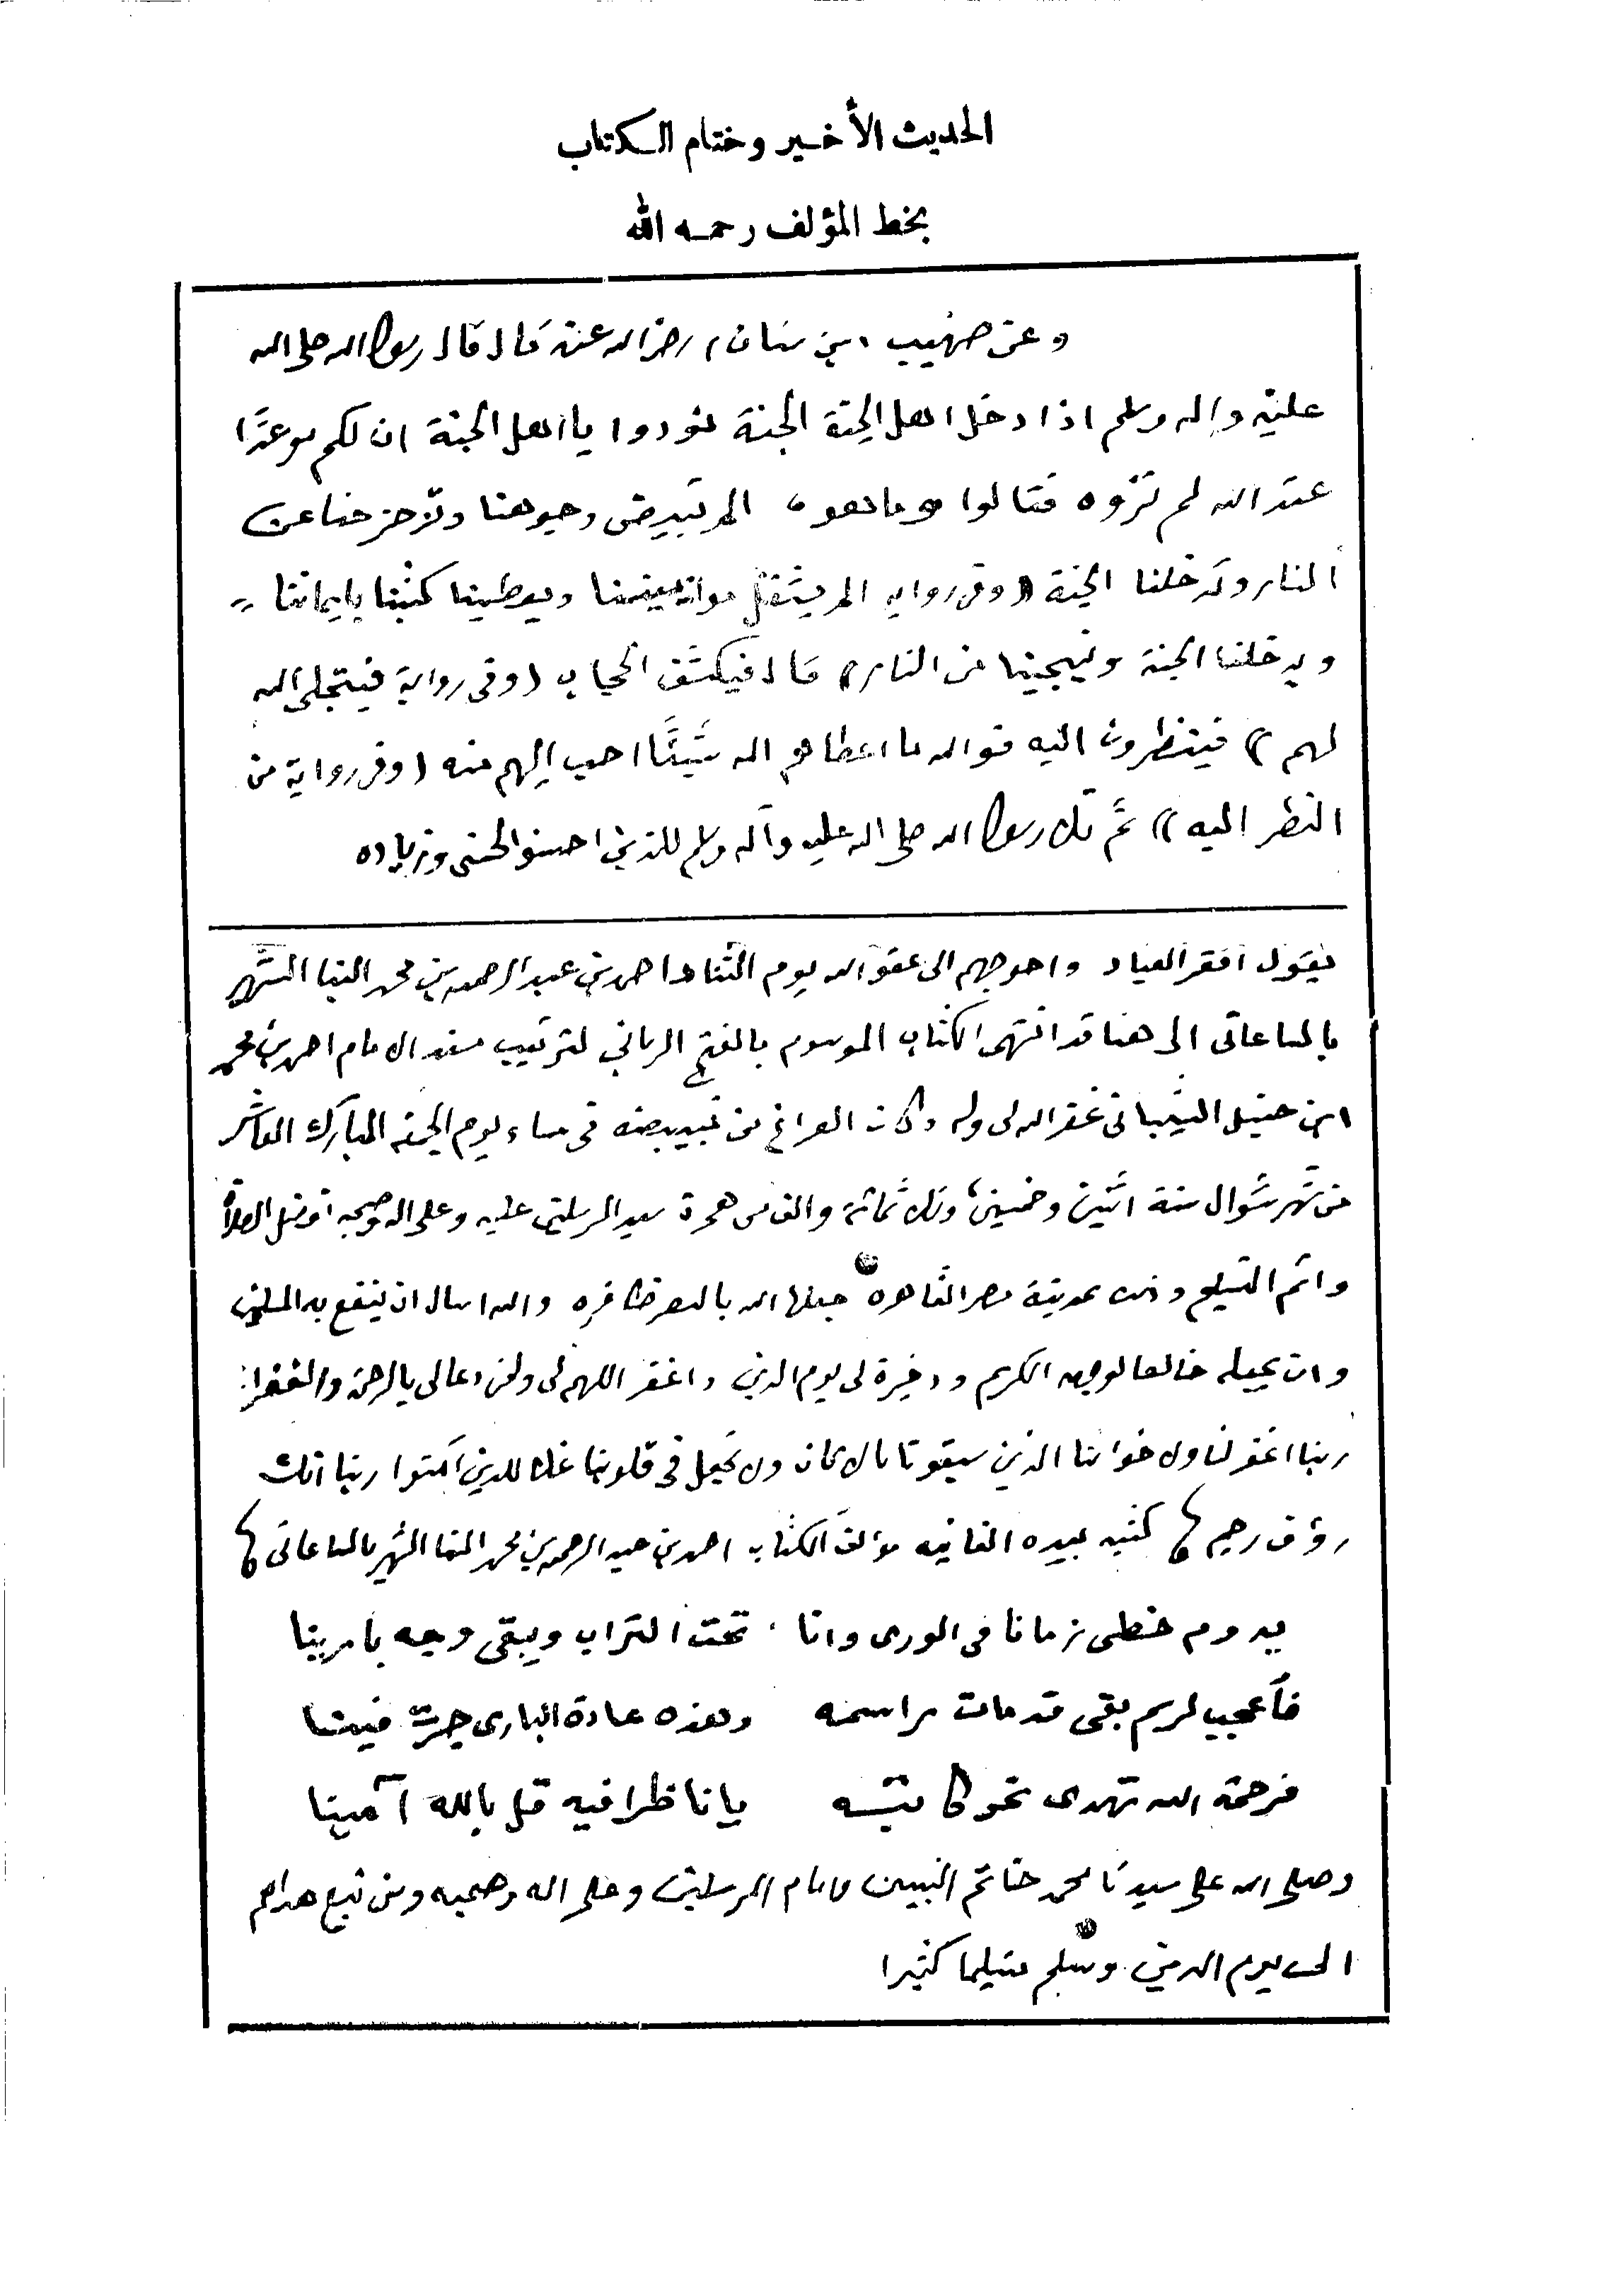 الحديث الأخير وختام الكتاب
بخط المؤلف رحمه الله
وعن صهيب بن سنان رضى الله عنه قال قال رسول الله صلى الله
عليه وآله وسلم اذا دخل اهل الجنة الجنة نودوا يا اهل الجنة ان لكم موعدًا
عند الله لم تروه فقالوا وما هو الم تبيض وجوهنا وتزحزحنا عن
النار وتدخلنا الجنة (وفى رواية الم يثقل موازيننا ويعطينا كتبنا بايماننا
ويدخلنا الجنة وينجينا من النار) قال فيكشف الحجاب (وفى رواية فيتجلى الله
لهم) فينظرون اليه فوالله ما اعطاهم الله شيئًا احب اليهم منه (وفى رواية من
النظر اليه) ثم تلا رسول الله صلى الله عليه وآله وسلم للذين احسنوا الحسنى وزياده
يقول افقر العباد واحوجهم الى عفو الله يوم التناد احمد بن عبد الرحمن بن محمد البنا الشهير
بالساعاتى الى هنا قد انتهى الكتاب الموسوم بالفتح الربانى لترتيب مسند الامام احمد بن محمد
ابن حنبل الشيبانى غفر الله لى وله وكان الفراغ من تبييضه فى مساء يوم الجمعه المبارك العاشر
من شهر شوال سنة اثنين وخمسين وثلاثمائة والف من هجرة سيد المرسلين عليه وعلى اله وصحبه افضل الصلاة
واتم التسليم وذلك بمدينة مصر القاهره جعلها الله بالنصر ظافره والله اسال ان ينفع به المسلمين
وان يجعله خالصا لوجهه الكريم وذخيرة لى يوم الدين واغفر اللهم لى ولمن دعا لى بالرحمة والغفران
ربنا اغفر لنا ولاخواننا الذين سبقونا بالايمان ولا تجعل فى قلوبنا غلا للذين آمنوا ربنا انك
رؤف رحيم كتبه بيده الفانيه مؤلف الكتاب احمد بن عبد الرحمن بن محمد البنا الشهير بالساعاتى
يدوم خطى زمانا فى الورى وانا تحت التراب ويبقى وجه بارينا
فأعجب لرسم بقى قد مات راسمه وهذه عادة البارى جرت فينا
فرحمة الله تهدى نحو كاتبه يا ناظرا فيه قل بالله آمينا
وصلى الله على سيدنا محمد خاتم النبيين وامام المرسلين وعلى اله وصحبه ومن تبع هداهم
الى يوم الدين وسلم تسليما كثيرا